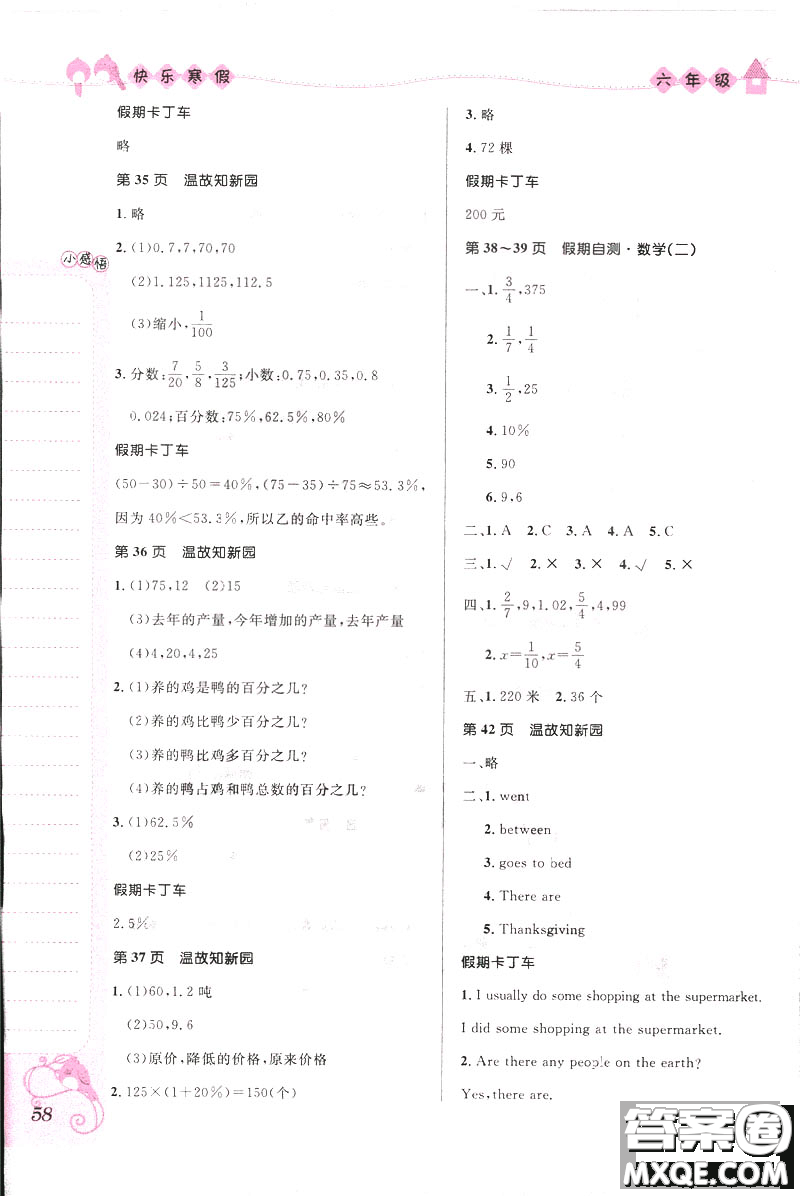 快乐寒假
六年级
小感悟
假期卡丁车
略
第 35 页 温故知新园
1. 略
2. (1)0.7,7,70,70
(2)1.125,1125,112.5
(3)缩小,1/100
3. 分数:7/20,5/8,3/125;小数:0.75,0.35,0.8
0.024;百分数:75%,62.5%,80%
假期卡丁车
(50－30)÷50＝40%,(75－35)÷75≈53.3%,
因为 40%＜53.3%,所以乙的命中率高些。
第 36 页 温故知新园
1. (1)75,12 (2)15
(3)去年的产量,今年增加的产量,去年产量
(4)4,20,4,25
2. (1)养的鸡是鸭的百分之几?
(2)养的鸡比鸭少百分之几?
(3)养的鸭比鸡多百分之几?
(4)养的鸭占鸡和鸭总数的百分之几?
3. (1)62.5%
(2)25%
假期卡丁车
2.5%
第 37 页 温故知新园
1. (1)60,1.2 吨
(2)50,9.6
(3)原价,降低的价格,原来价格
2. 125×(1＋20%)＝150(个)
58
3. 略
4. 72 棵
假期卡丁车
200 元
第 38～39 页 假期自测·数学(二)
一、1. 3/4,375
2. 1/7,1/4
3. 1/2,25
4. 10%
5. 90
6. 9,6
二、1. A 2. C 3. A 4. A 5. C
三、1. √ 2. × 3. × 4. √ 5. ×
四、1. 2/7,9,1.02,5/4,4,99
2. x＝1/10,x＝5/4
五、1. 220 米 2. 36 个
第 42 页 温故知新园
一、略
二、1. went
2. between
3. goes to bed
4. There are
5. Thanksgiving
假期卡丁车
1. I usually do some shopping at the supermarket.
I did some shopping at the supermarket.
2. Are there any people on the earth?
Yes, there are.
答案圈
MXQE.COM